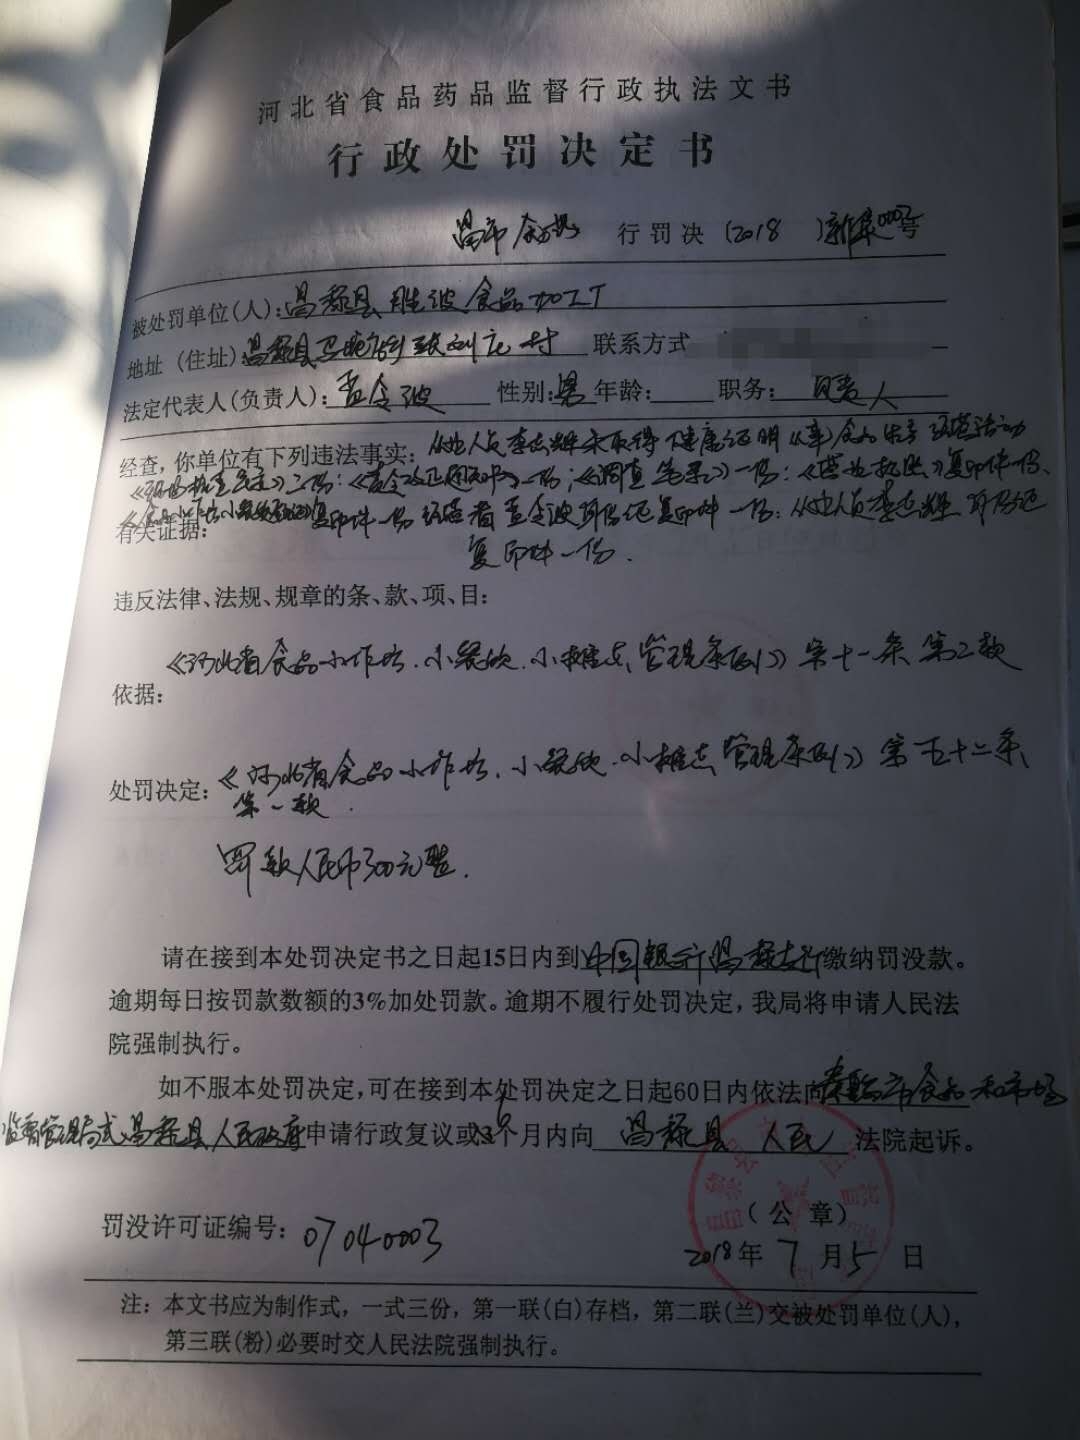 河北省食品药品监督行政执法文书
行政处罚决定书
昌市 行罚决(2018)新集0002号
被处罚单位(人):昌黎县胜波食品加工厂
地址(住址)昌黎县马 刘庄村 联系方式
法定代表人(负责人):孟令波 性别:男 年龄: 职务:负责人
经查,你单位有下列违法事实:从业人员李志辉未取得健康证明从事食品生产经营活动
《现场检查笔录》二份;《责令改正通知书》一份;《调查笔录》一份;《营业执照》复印件一份、
《食品小作坊小餐饮登记证》复印件一份 经营者孟令波身份证复印件一份;从业人员李志辉身份证
有关证据:
复印件一份.
违反法律、法规、规章的条、款、项、目:
《河北省食品小作坊、小餐饮、小摊点管理条例》第十一条第二款
依据:
《河北省食品小作坊、小餐饮、小摊点管理条例》第五十二条
处罚决定:
第一款.
罚款人民币300元整.
请在接到本处罚决定书之日起15日内到中国银行昌黎支行缴纳罚没款。
逾期每日按罚款数额的3%加处罚款。逾期不履行处罚决定,我局将申请人民法
院强制执行。
如不服本处罚决定,可在接到本处罚决定之日起60日内依法向秦皇岛市食品和市场
监督管理局或昌黎县人民政府申请行政复议或 个月内向 昌黎县 人民 法院起诉。
(公章)
罚没许可证编号:07040003
2018年7月5日
注:本文书应为制作式,一式三份,第一联(白)存档,第二联(兰)交被处罚单位(人),
第三联(粉)必要时交人民法院强制执行。